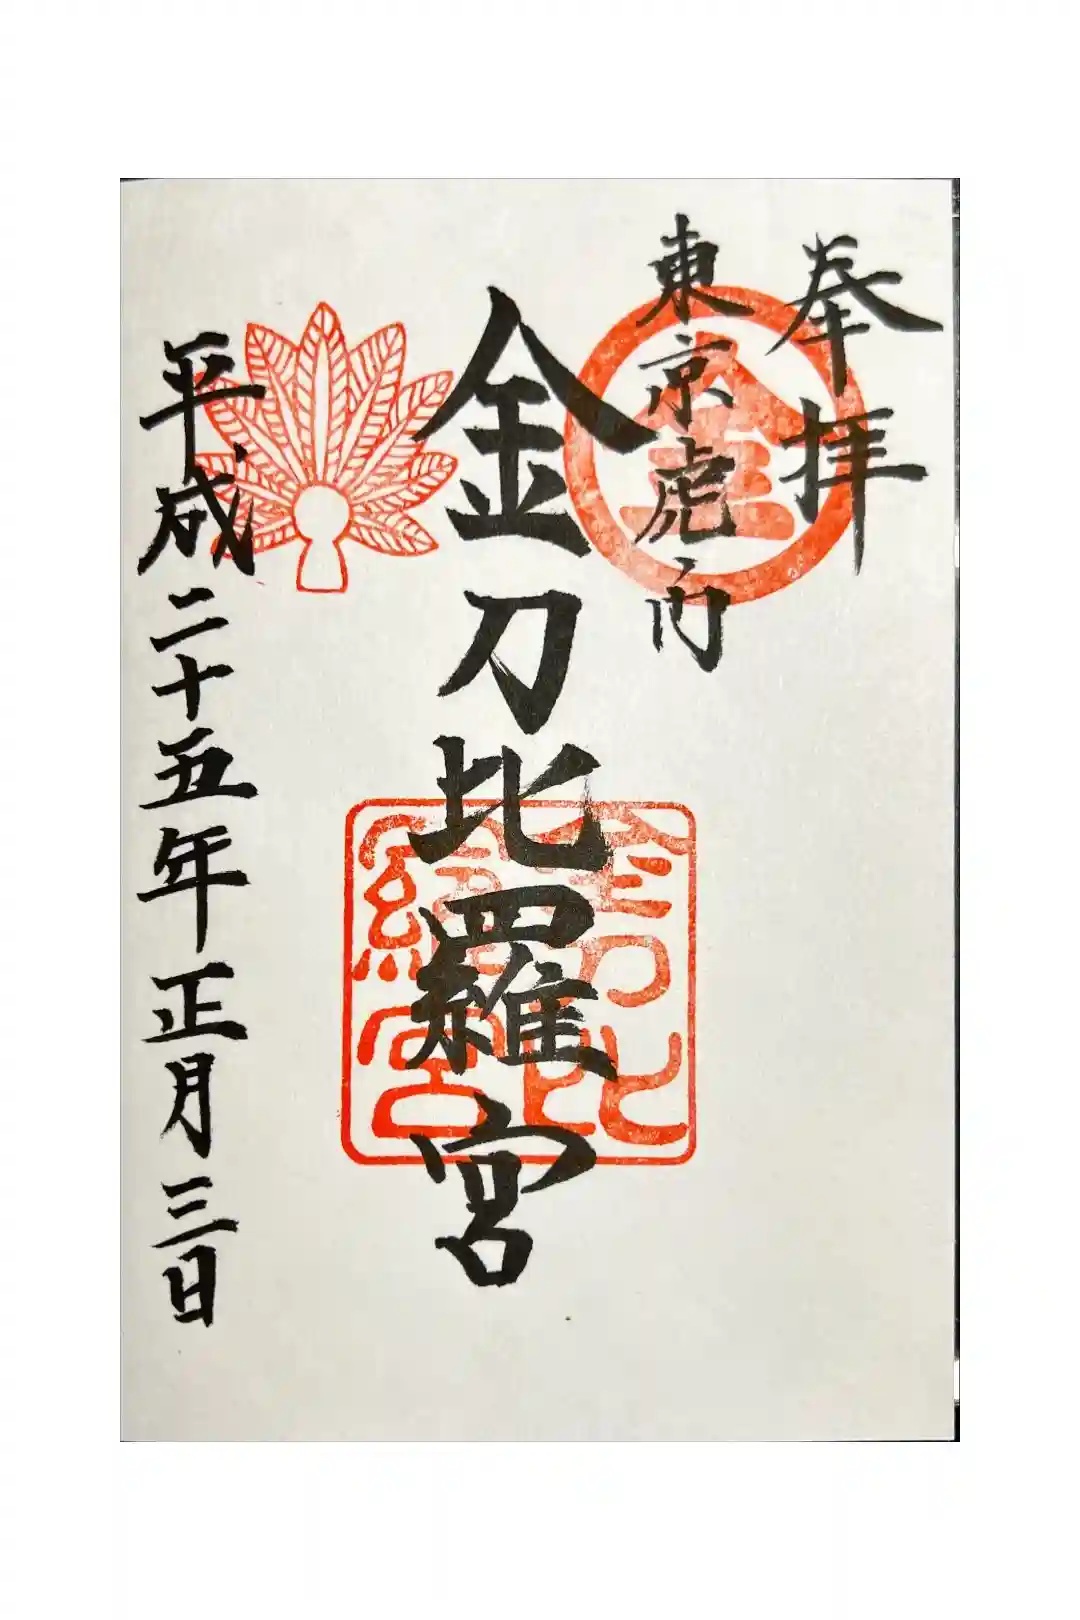 奉拝
東京虎ノ門
金刀比羅宮
平成二十五年正月三日
金
金刀比
羅宮